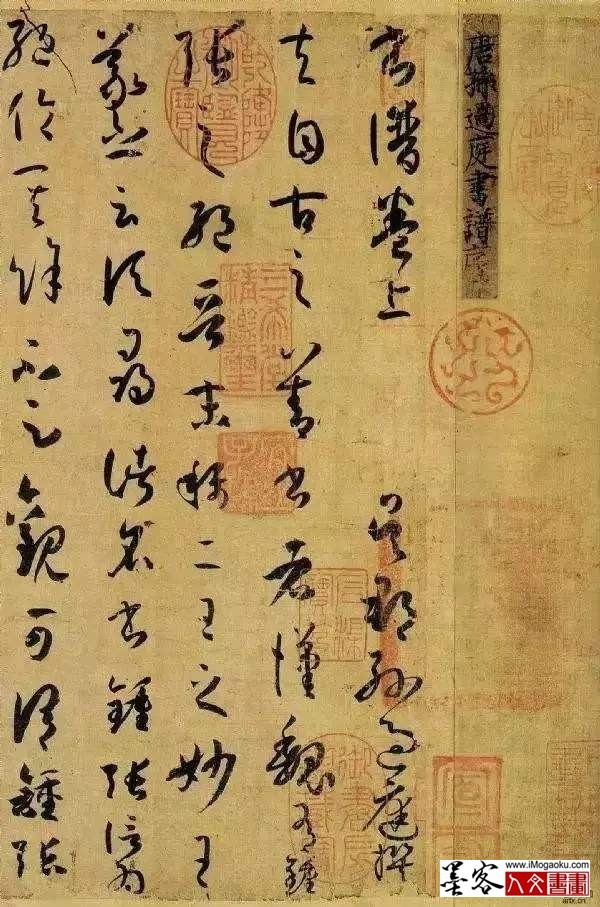 唐孫過庭書譜序
書譜卷上 吳郡孫過庭撰
夫自古之善書者漢魏有鍾
張之絕晉末稱二王之妙王
羲之云頃尋諸名書鍾張信為
絕倫其餘不足觀可謂鍾張
三希堂精鑑璽
宜子孫
www.iMogaoku.com
墨客
人文書畫
artx.cn